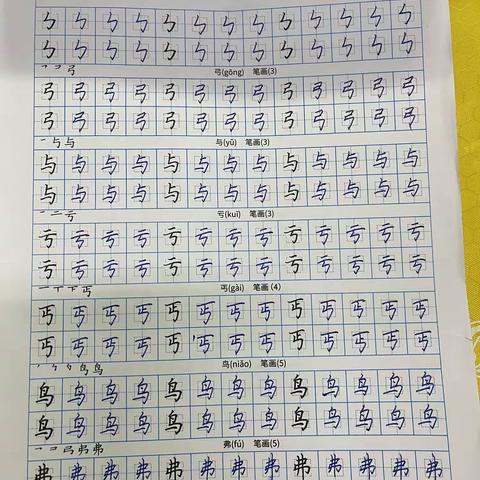 ㄅ ㄅ ㄅ ㄅ ㄅ ㄅ ㄅ ㄅ ㄅ ㄅ ㄅ ㄅ ㄅ
ㄅ ㄅ ㄅ ㄅ ㄅ ㄅ ㄅ ㄅ ㄅ ㄅ ㄅ ㄅ ㄅ
㇕ コ 弓 弓(gōng) 笔画(3)
弓 弓 弓 弓 弓 弓 弓 弓 弓 弓 弓 弓 弓
弓 弓 弓 弓 弓 弓 弓 弓 弓 弓 弓 弓 弓
一 与 与 与(yǔ) 笔画(3)
与 与 与 与 与 与 与 与 与 与 与 与 与
与 与 与 与 与 与 与 与 与 与 与 与 与
一 二 亏 亏(kuī) 笔画(3)
亏 亏 亏 亏 亏 亏 亏 亏 亏 亏 亏 亏 亏
亏 亏 亏 亏 亏 亏 亏 亏 亏 亏 亏 亏 亏
一 丅 下 丐 丐(gài) 笔画(4)
丐 丐 丐 丐 丐 丐 丐 丐 丐 丐 丐 丐 丐
丐 丐 丐 丐 丐 丐 丐 丐 丐 丐 丐 丐 丐
鸟 鸟 鸟(niǎo) 笔画(5)
鸟 鸟 鸟 鸟 鸟 鸟 鸟 鸟 鸟 鸟 鸟 鸟 鸟
鸟 鸟 鸟 鸟 鸟 鸟 鸟 鸟 鸟 鸟 鸟 鸟 鸟
㇕ コ 弓 弗 弗(fú) 笔画(5)
弗 弗 弗 弗 弗 弗 弗 弗 弗 弗 弗 弗 弗